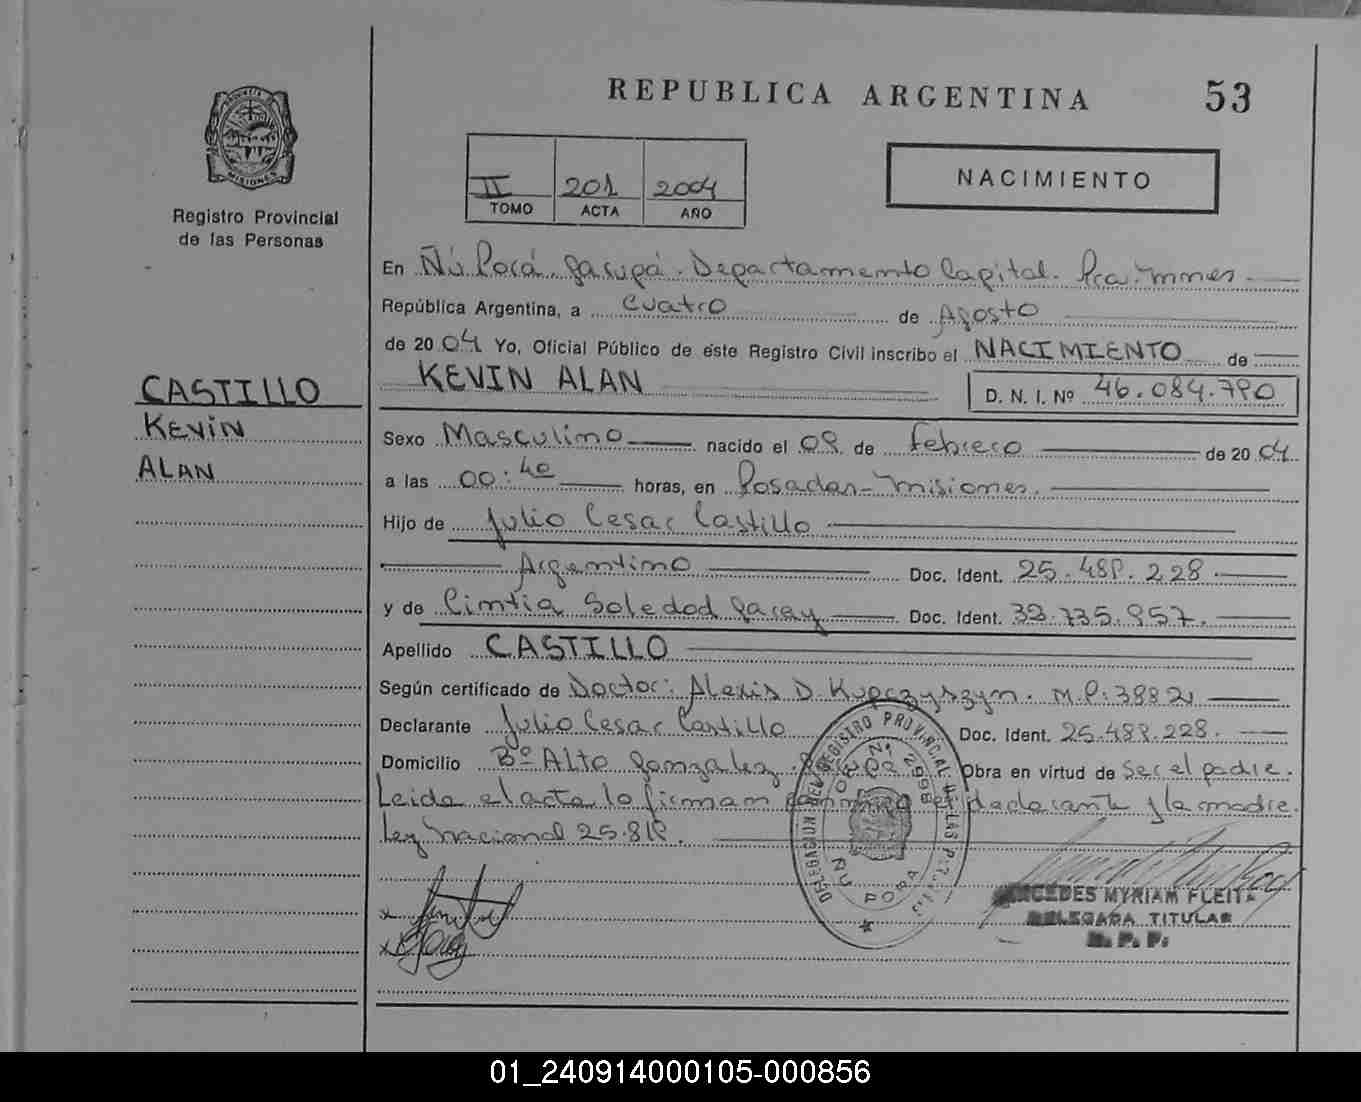 REPUBLICA ARGENTINA 53
PROVINCIA DE MISIONES
Registro Provincial
de las Personas
II 201 2004
TOMO ACTA AÑO
NACIMIENTO
En Ñú Porá, Garupá. Departamento Capital. Pcia. Mnes
República Argentina, a cuatro de Agosto
de 2004 Yo, Oficial Público de este Registro Civil inscribo el NACIMIENTO de
KEVIN ALAN D. N. I. Nº 46.084.790
CASTILLO
KEVIN
ALAN
Sexo Masculino nacido el 08 de febrero de 2004
a las 00:40 horas, en Posadas-Misiones.
Hijo de Julio Cesar Castillo
Argentino Doc. Ident. 25.488.228
y de Cintia Soledad Garay Doc. Ident. 32.735.957.
Apellido CASTILLO
Según certificado de Doctor: Alexis D. Kupczyszyn. M.P: 3882
Declarante Julio Cesar Castillo Doc. Ident. 25.488.228.
Domicilio Bº Alto Gonzalez. Obra en virtud de ser el padre.
Leida el acta lo firman conmigo el declarante y la madre.
Ley Nacional 25.819.
DELEGACION DEL REGISTRO PROVINCIAL DE LAS
Nº 2998
ÑU PORA
MERCEDES MYRIAM FLEITA
DELEGADA TITULAR
R. P. P.
01_240914000105-000856